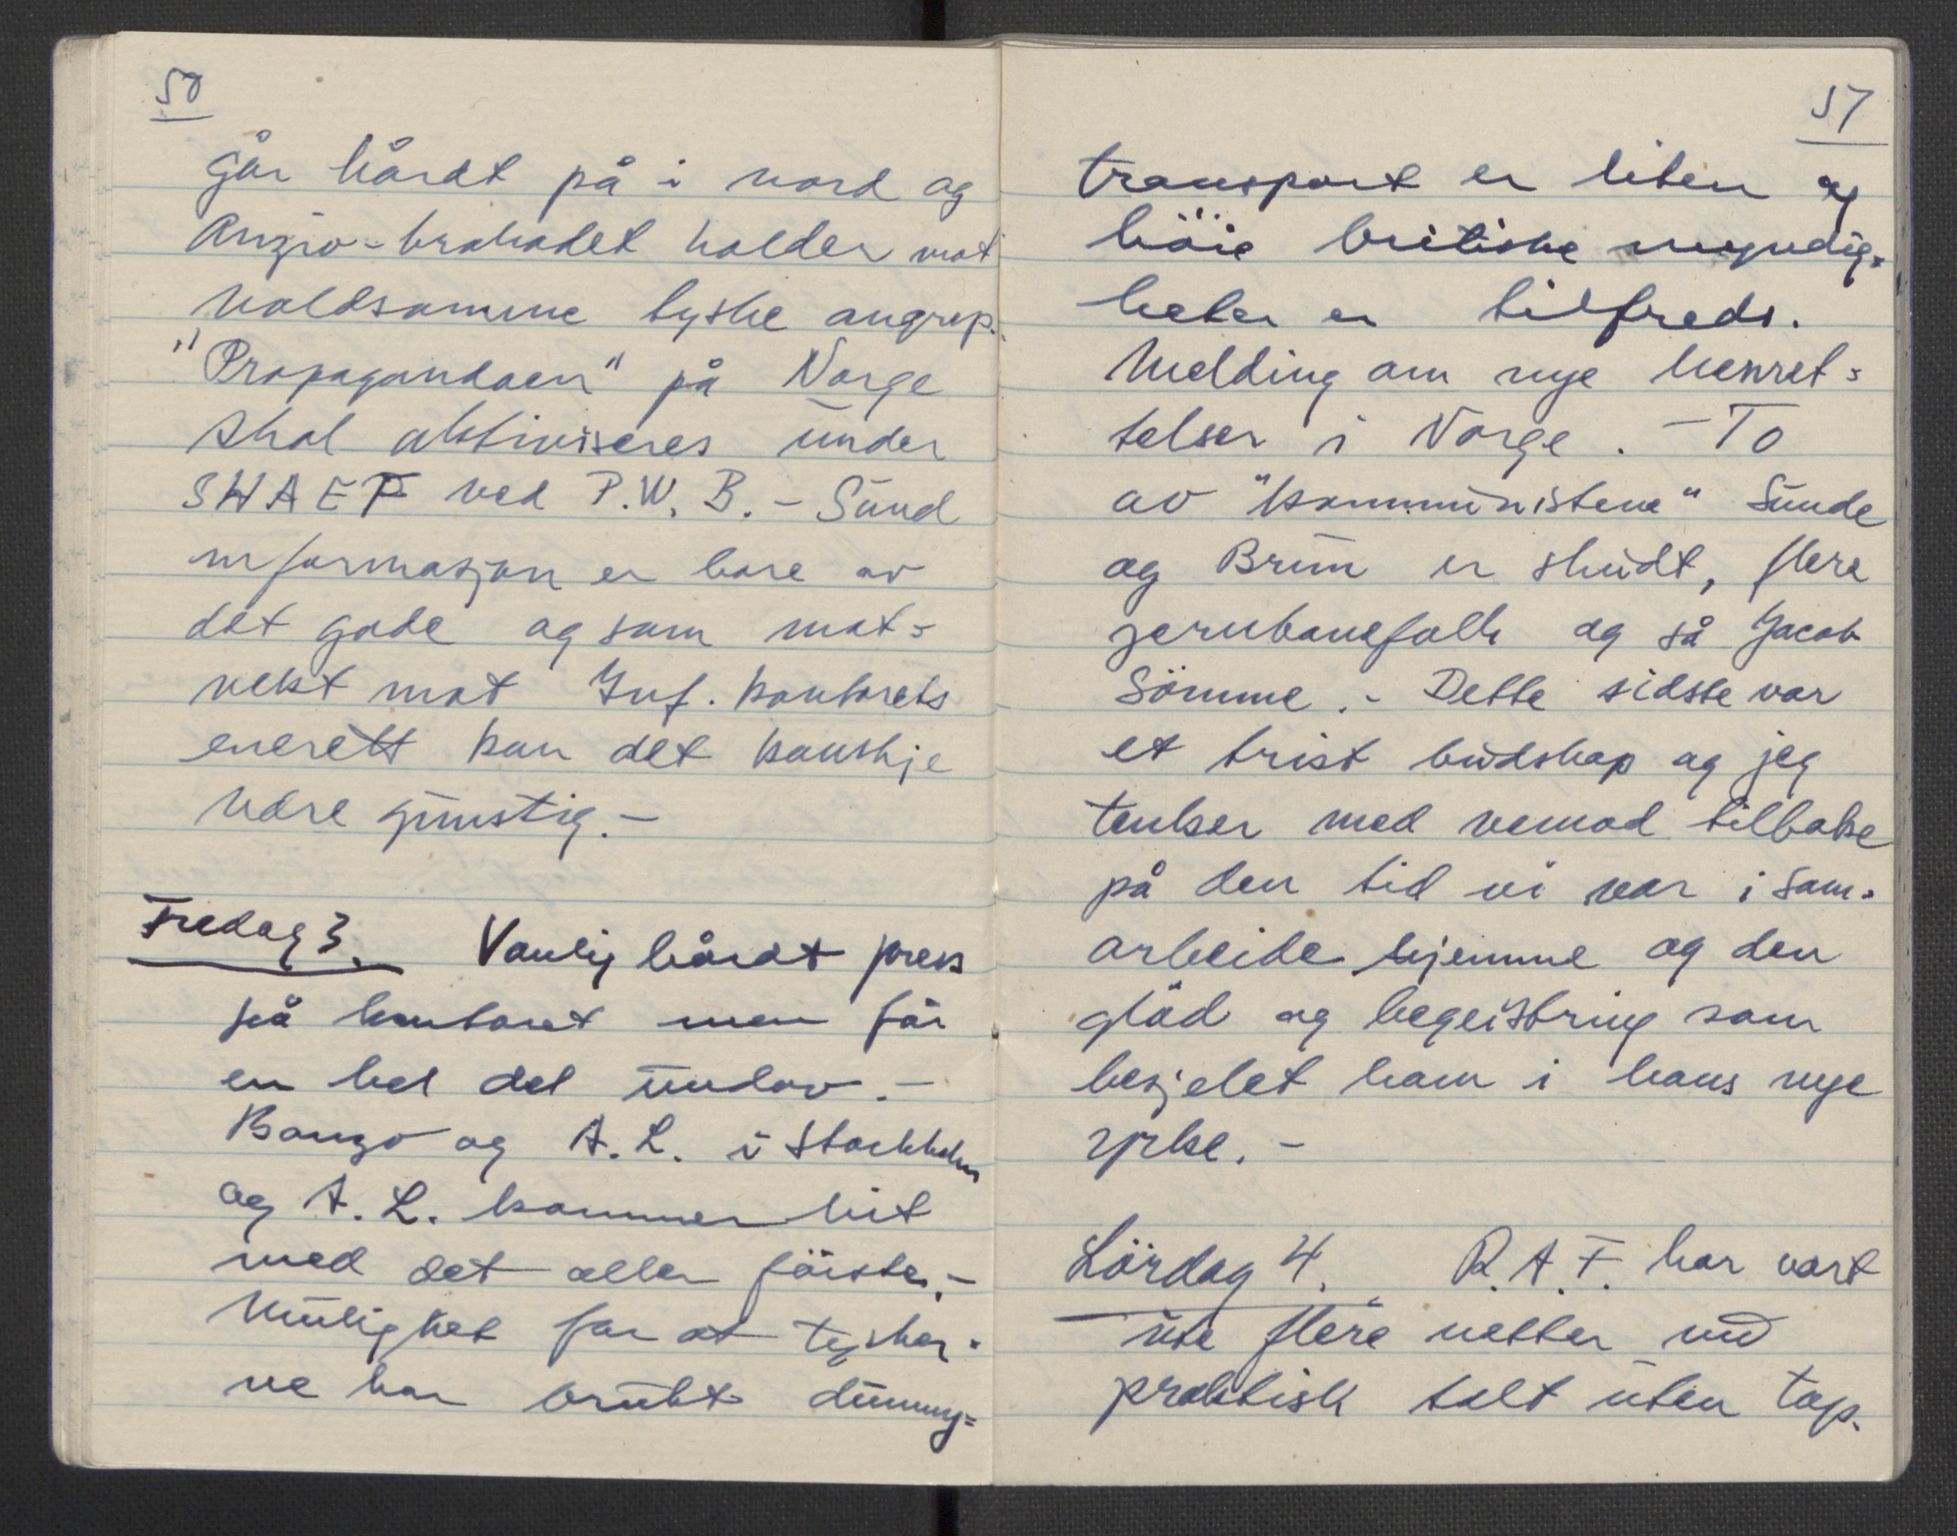 50
går hårdt på i nord og
Anzio-brohodet holder mot
voldsomme tyske angrep.
"Propagandaen" på Norge
skal aktiviseres under
SHAEF ved P.W.B. - Sund
informasjon er bare av
det gode og som mot=
vekt mot Inf. kontorets
enerett kan det kanskje
være gunstig. -
Fredag 3. Vanlig hårdt press
på kontoret men får
en hel del undav. -
Banzo og A.L. i Stockholm
og A.L. kommer hit
med det aller förste. -
Mulighet for at tysker-
ne har brukt dummy=
51
transport er liten og
höie britiske myndig=
heter er tilfreds.
Melding om nye henret=
telser i Norge. - To
av "kommunistene" Sunde
og Brun er skudt, flere
jernbanefolk og så Jacob
Sömme. - Dette sidste var
et trist budskap og jeg
tenker med vemod tilbake
på den tid vi var i sam-
arbeide hjemme og den
glöd og begeistring som
besjelet ham i hans nye
yrke. -
Lördag 4. R.A.F. har vært
ute flere netter med
praktisk talt uten tap.